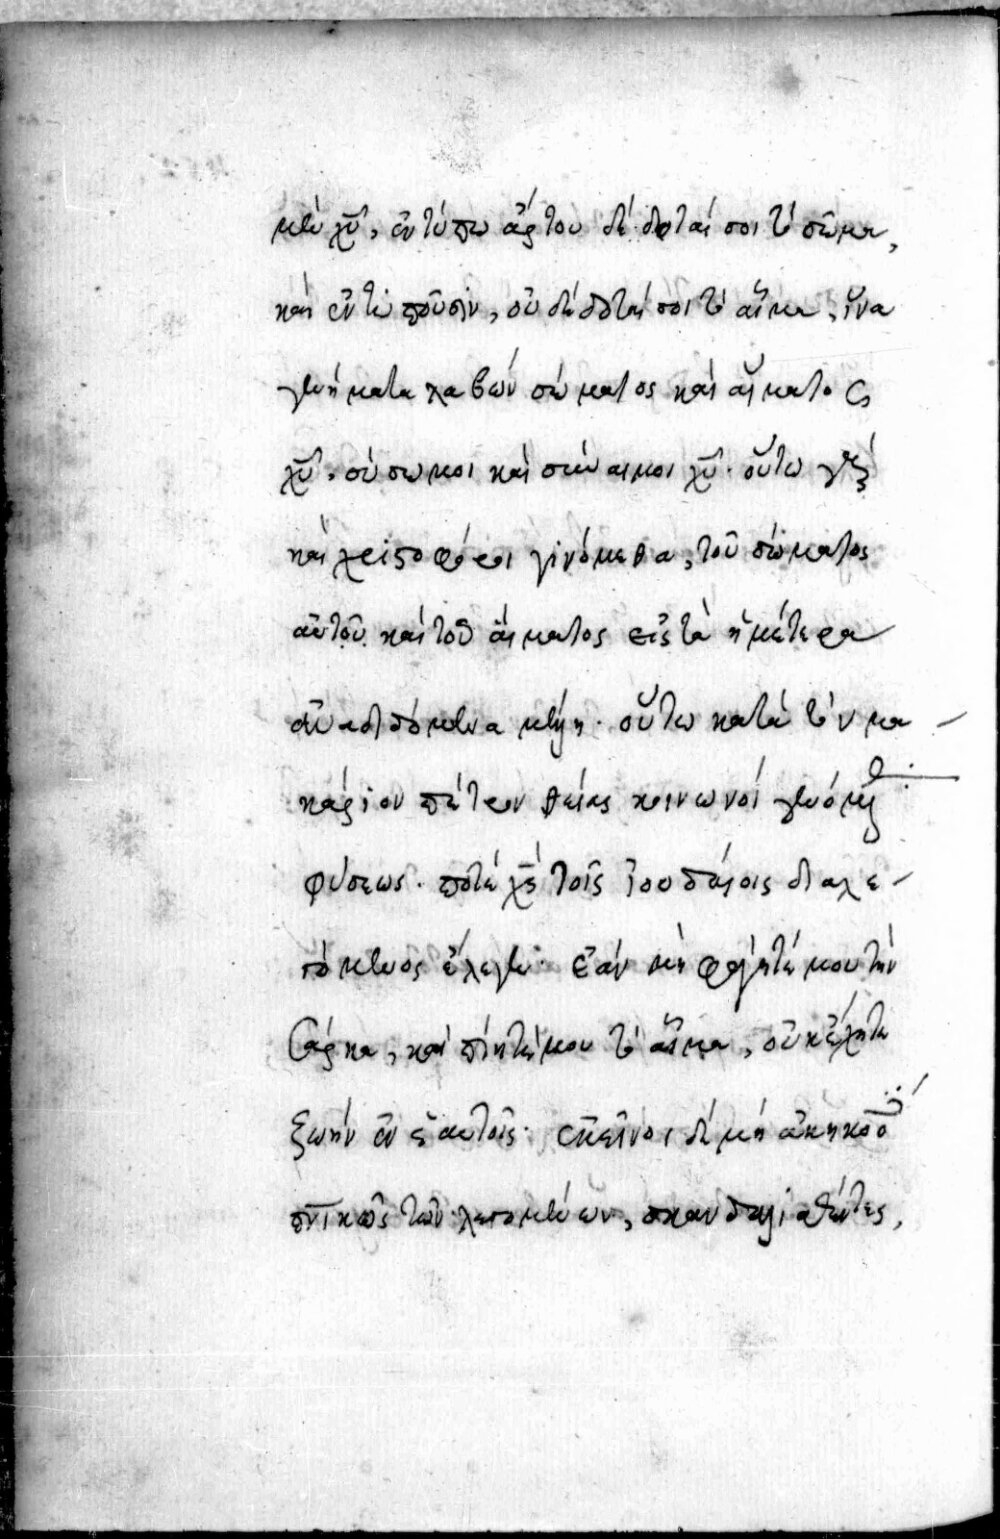 μεν χῦ, ἐν τύπω ἄρτου δίδοταί σοι τὸ σῶμα,
καὶ ἐν τύπω οἴνου δίδοταί σοι τὸ αἷμα, ἵνα
γένη μεταλαβὼν σώματος καὶ αἵματος
χῦ, σύσωμοι καὶ σύναιμοι χῦ. οὕτω γὰρ
καὶ χριστοφόροι γινόμεθα, τοῦ σώματος
αὐτοῦ καὶ τοῦ αἵματος εἰς τὰ ἡμέτερα
ἀναδιδόμενα μέλη. οὕτω κατὰ τὸν μα
κάριον πέτρον θείας κοινωνοὶ γενόμεθα
φύσεως. ποτὲ χς τοῖς ἰουδαίοις διαλε
γόμενος ἔλεγεν. ἐὰν μὴ φάγητέ μου τὴν
σάρκα, καὶ πίητέ μου τὸ αἷμα, οὐκ ἔχητε
ζωὴν ἐν ἑαυτοῖς. ἐκεῖνοι δὲ μὴ ἀκηκοό
πνικῶς τῶν λεγομένων, σκανδαλισθέντες,